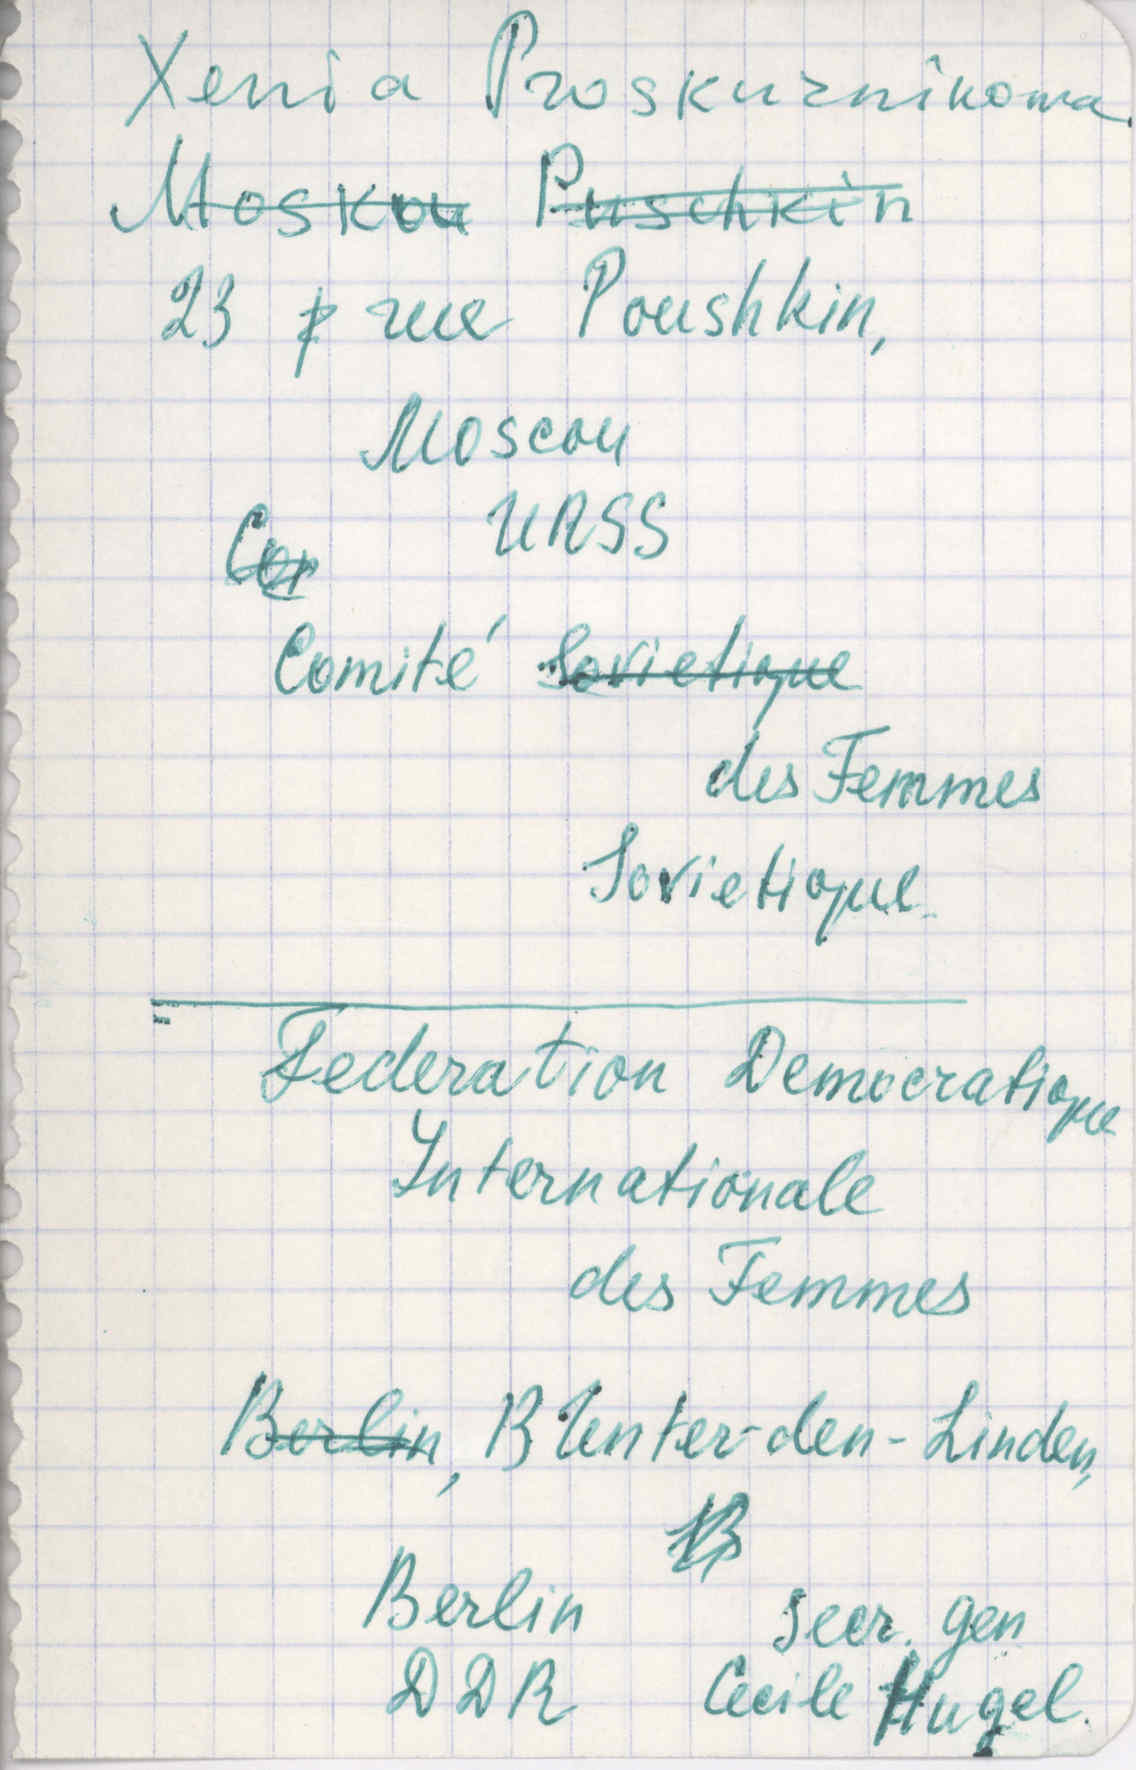 Xenia Proskurnikowa.
Moskou Puschkin
23 rue Poushkin,
Moscou
URSS
Com
Comité Sovietique
des Femmes
Sovietique
Federation Democratique
Internationale
des Femmes
Berlin, 13 Unter-den-Linden,
13
Berlin
secr. gen
DDR Cecile Hugel.